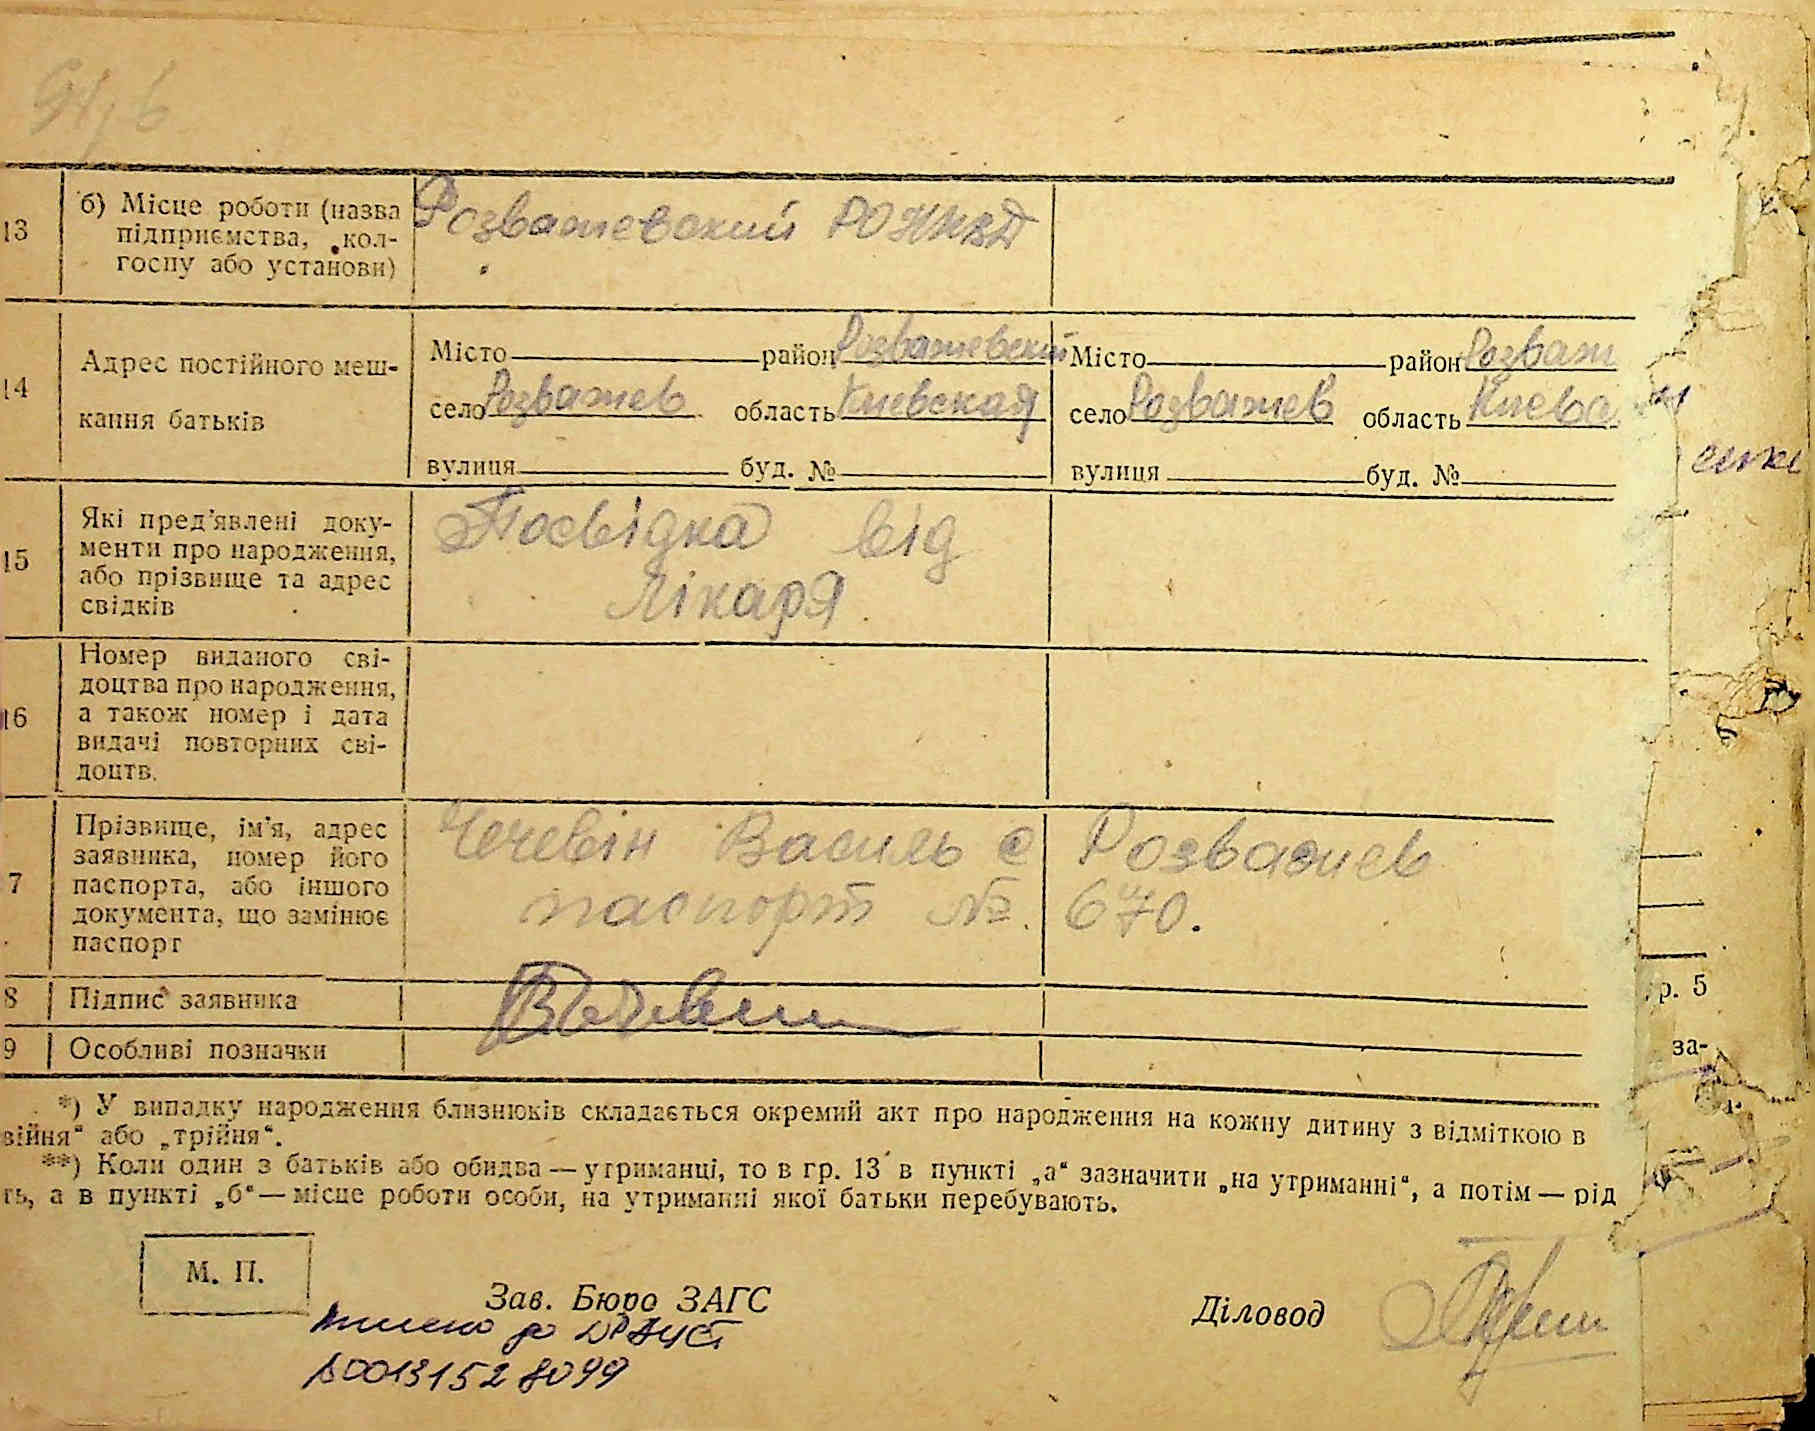 13
б) Місце роботи (назва
підприємства, кол-
госпу або установи)
Розважевский РОНКВД
14
Адрес постійного меш-
кання батьків
Місто район Розважевский
село Розважев область Киевская
вулиця буд. №
Місто район Розваж
село Розважев область Киевс
вулиця буд. №
15
Які пред'явлені доку-
менти про народження,
або прізвище та адрес
свідків
Посвідка від
лікаря
16
Номер виданого сві-
доцтва про народження,
а також номер і дата
видачі повторних сві-
доцтв.
7
Прізвище, ім'я, адрес
заявника, номер його
паспорта, або іншого
документа, що замінює
паспорт
Чечевін Василь с Розважев
паспорт №. 670.
8 Підпис заявника
9 Особливі позначки
р. 5
за-
*) У випадку народження близнюків складається окремий акт про народження на кожну дитину з відміткою в
війня" або „трійня".
**) Коли один з батьків або обидва — утриманці, то в гр. 13 в пункті „а" зазначити „на утриманні", а потім — рід
ть, а в пункті „б" — місце роботи особи, на утриманні якої батьки перебувають.
М. П.
Зав. Бюро ЗАГС
Діловод
внесено до ДРАЦС